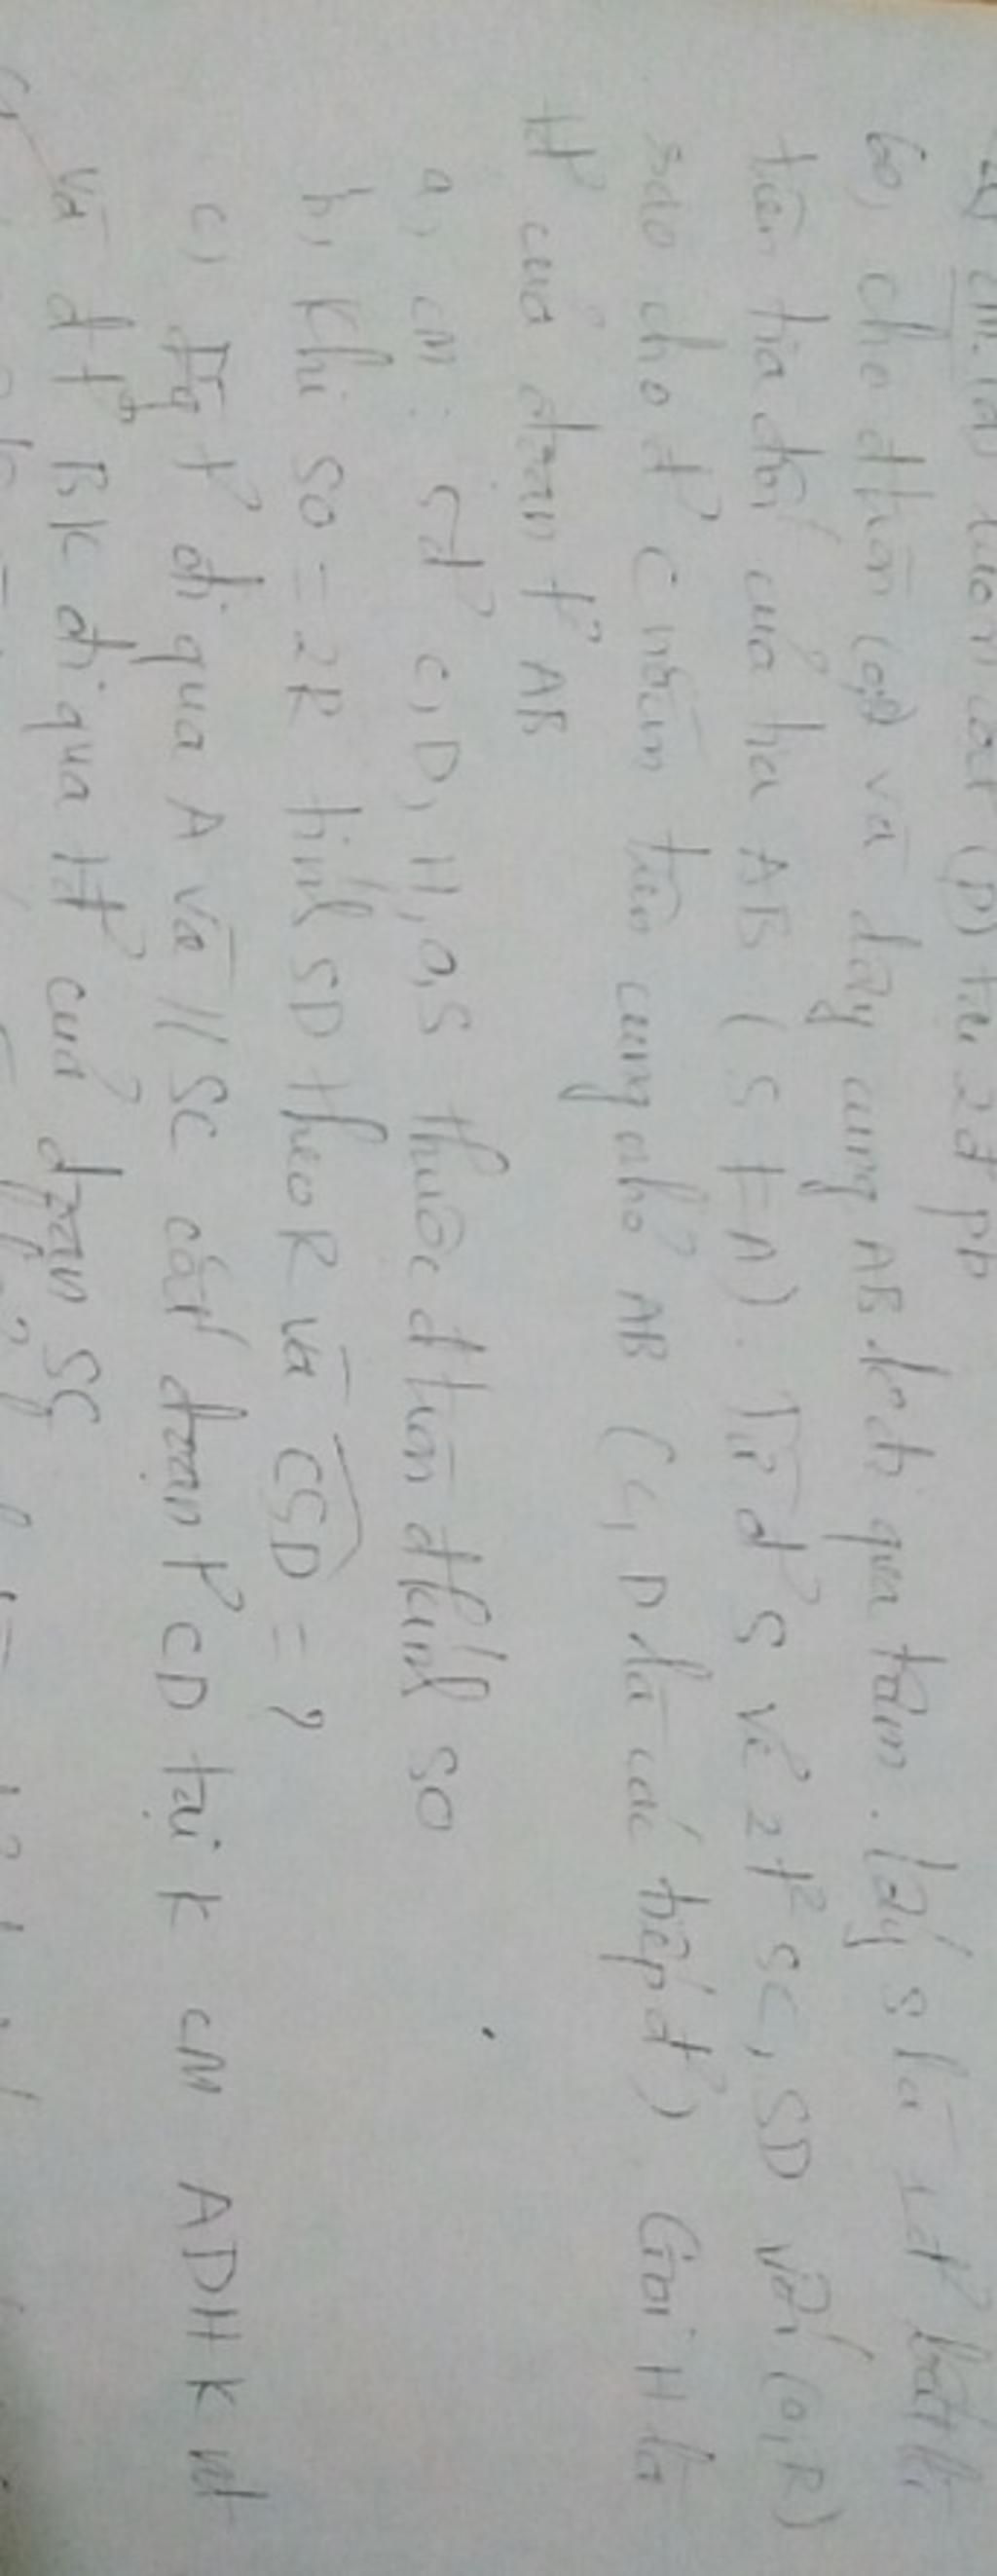 CM: (d) luôn cắt (P) tại 2đ pb
60, cho đtròn (O,R) và dây cung AB không qua tâm. lấy S là 1 đ' bất kì
trên tia đối của tia AB (S ≠ A). Từ đ' S vẽ 2 t² SC, SD với (O,R)
sao cho đ' C nằm trên cung nhỏ AB (C, D là các tiếp đ'). Gọi H là
tđ' của đoạn t' AB
a, CM: 5đ' C, D, H, O, S thuộc đtròn đkính SO
b, Khi SO = 2R tính SD theo R và CSD = ?
c, Đg t' đi qua A và // SC cắt đoạn t' CD tại K CM ADHK nt
và đtg BK đi qua tđ' của đoạn SC